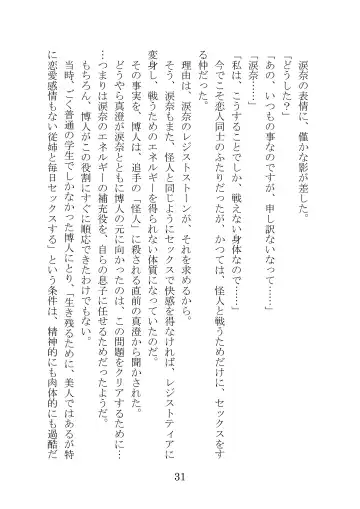 涙奈の表情に、僅かな影が差した。
「どうした？」
「あの、いつもの事なのですが、申し訳ないなって……」
「涙奈……」
「私は、こうすることでしか、戦えない身体なので……」
今でこそ恋人同士のふたりだったが、かつては、怪人と戦うためだけに、セックスをす
る仲だった。
理由は、涙奈のレジストストーンが、それを求めるから。
そう、涙奈もまた、怪人と同じようにセックスで快感を得なければ、レジストティアに
変身し、戦うためのエネルギーを得られない体質になっていたのだ。
その事実を、博人は、追手の「怪人」に殺される直前の真澄から聞かされた。
どうやら真澄が涙奈とともに博人の元に向かったのは、この問題をクリアするために…
…つまりは涙奈のエネルギーの補充役を、自らの息子に任せるためだったようだ。
もちろん、博人がこの役割にすぐに順応できたわけでもない。
当時、ごく普通の学生でしかなかった博人にとり、「生き残るために、美人ではあるが特
に恋愛感情もない従姉と毎日セックスする」という条件は、精神的にも肉体的にも過酷だ
31